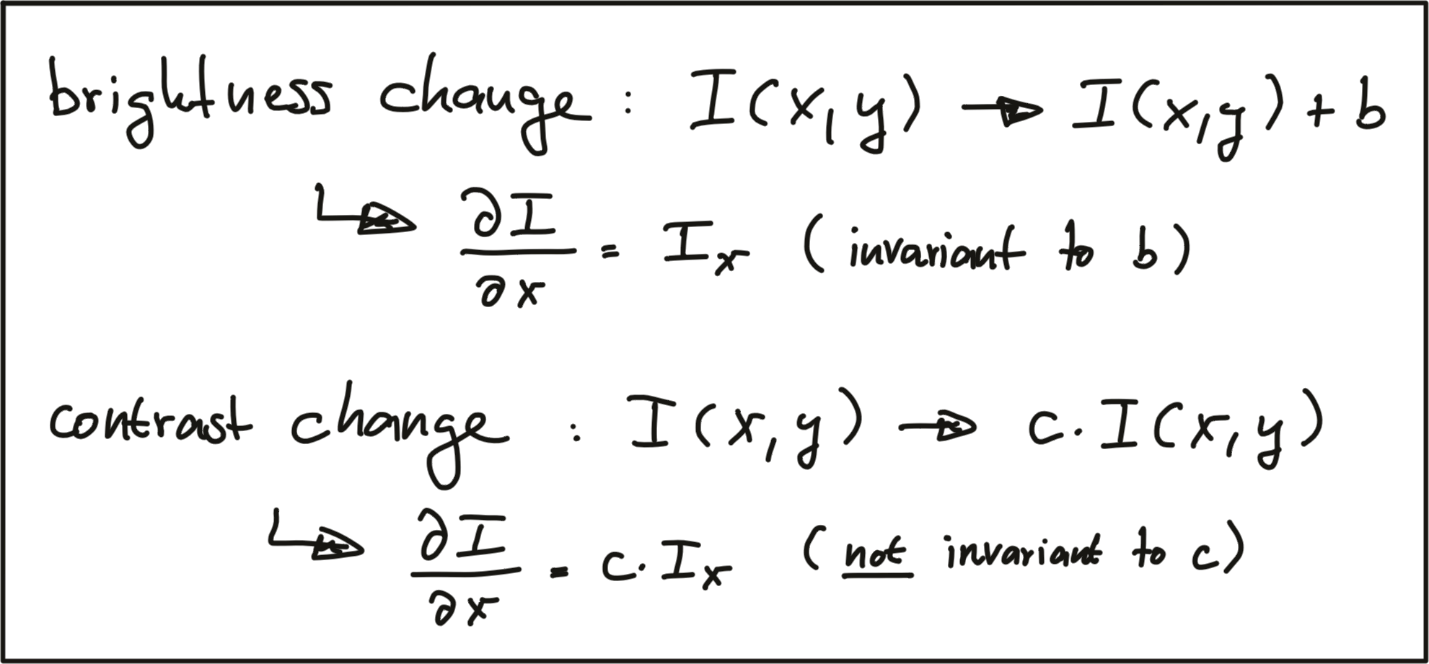 brightness change : I(x,y) → I(x,y) + b
↳ ∂I/∂x = I_x (invariant to b)
contrast change : I(x,y) → c·I(x,y)
↳ ∂I/∂x = c·I_x (not invariant to c)